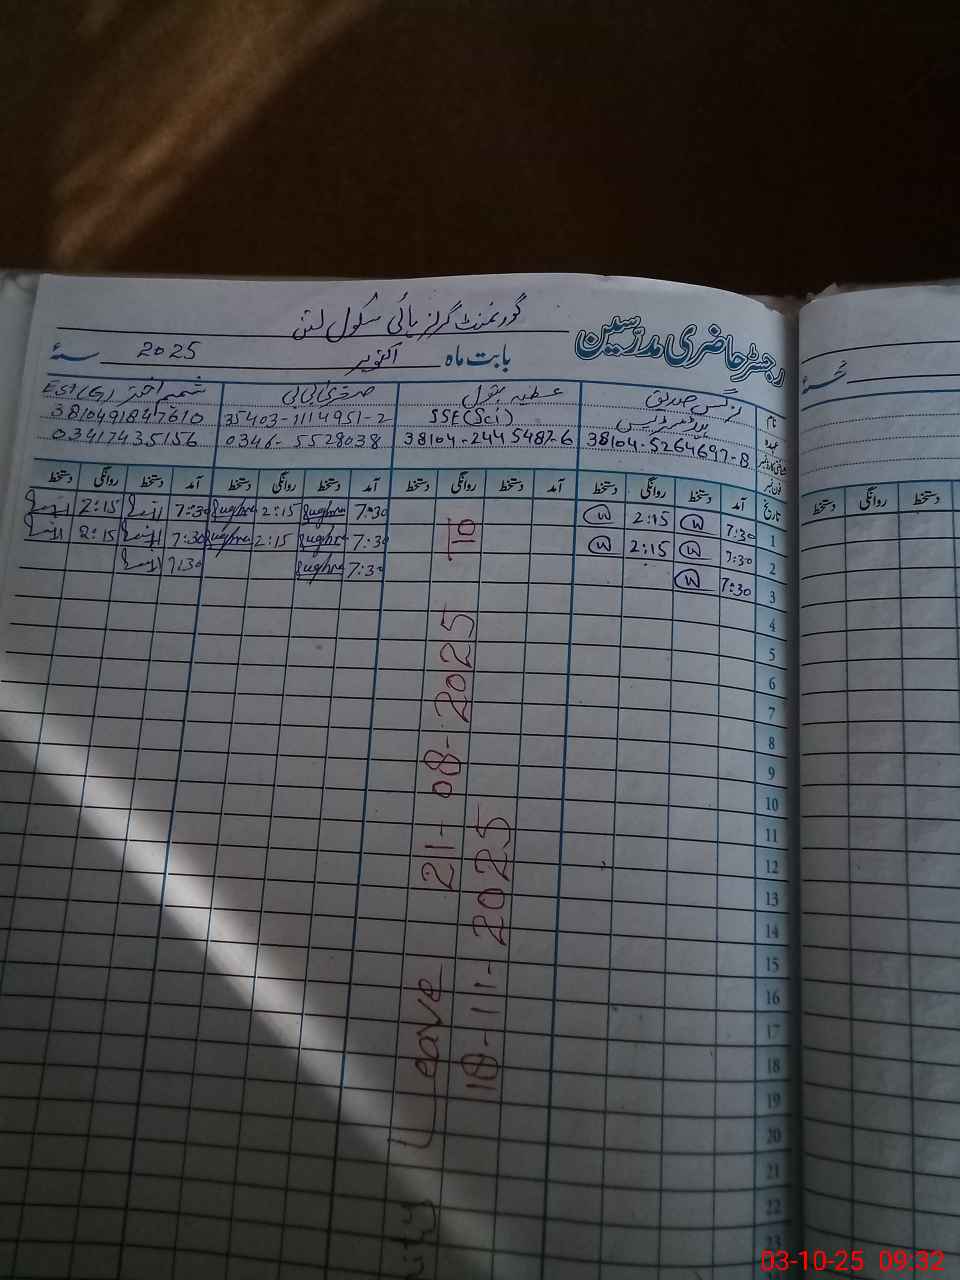 گورنمنٹ گرلز ہائی سکول
رجسٹر حاضری مدرسین
بابت ماہ اکتوبر 2025 سنۂ
نام نرگس صدیق عطیہ بتول صغریٰ بی بی شمیم اختر EST(G)
عہدہ SSE(Sci) 35403-1114951-2 3810491847610
شناختی کارڈ نمبر 38104-5264697-8 38104-2445487-6 0346-5528038 03417435156
فون نمبر
تاریخ آمد دستخط روانگی دستخط آمد دستخط روانگی دستخط آمد دستخط روانگی دستخط آمد دستخط روانگی دستخط
1 7:30 W 2:15 W 7:30 Sughra 2:15 Sughra 7:30 2:15
2 7:30 W 2:15 W 7:30 Sughra 2:15 Sughra 7:30 2:15
3 7:30 W 7:30 Sughra 7:30
4
5
6
7
8
9
10
11
12
13
14
15
16
17
18
19
20
21
22
23
Leave 21-08-2025 TO
18-11-2025
سنۂ
دستخط روانگی دستخط
03-10-25 09:32